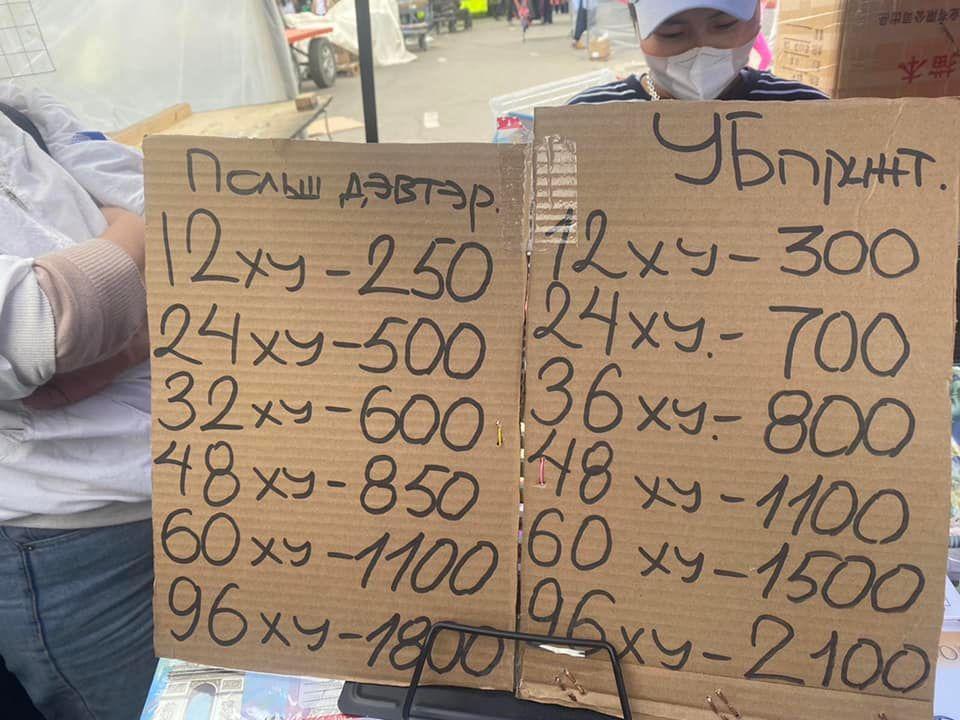 Польш дэвтэр.
12ху - 250
24ху - 500
32ху - 600
48ху - 850
60ху - 1100
96ху - 1800
УБпринт.
12ху - 300
24ху. - 700
36ху. - 800
48ху - 1100
60ху - 1500
96ху - 2100
业有限公司出品
描本